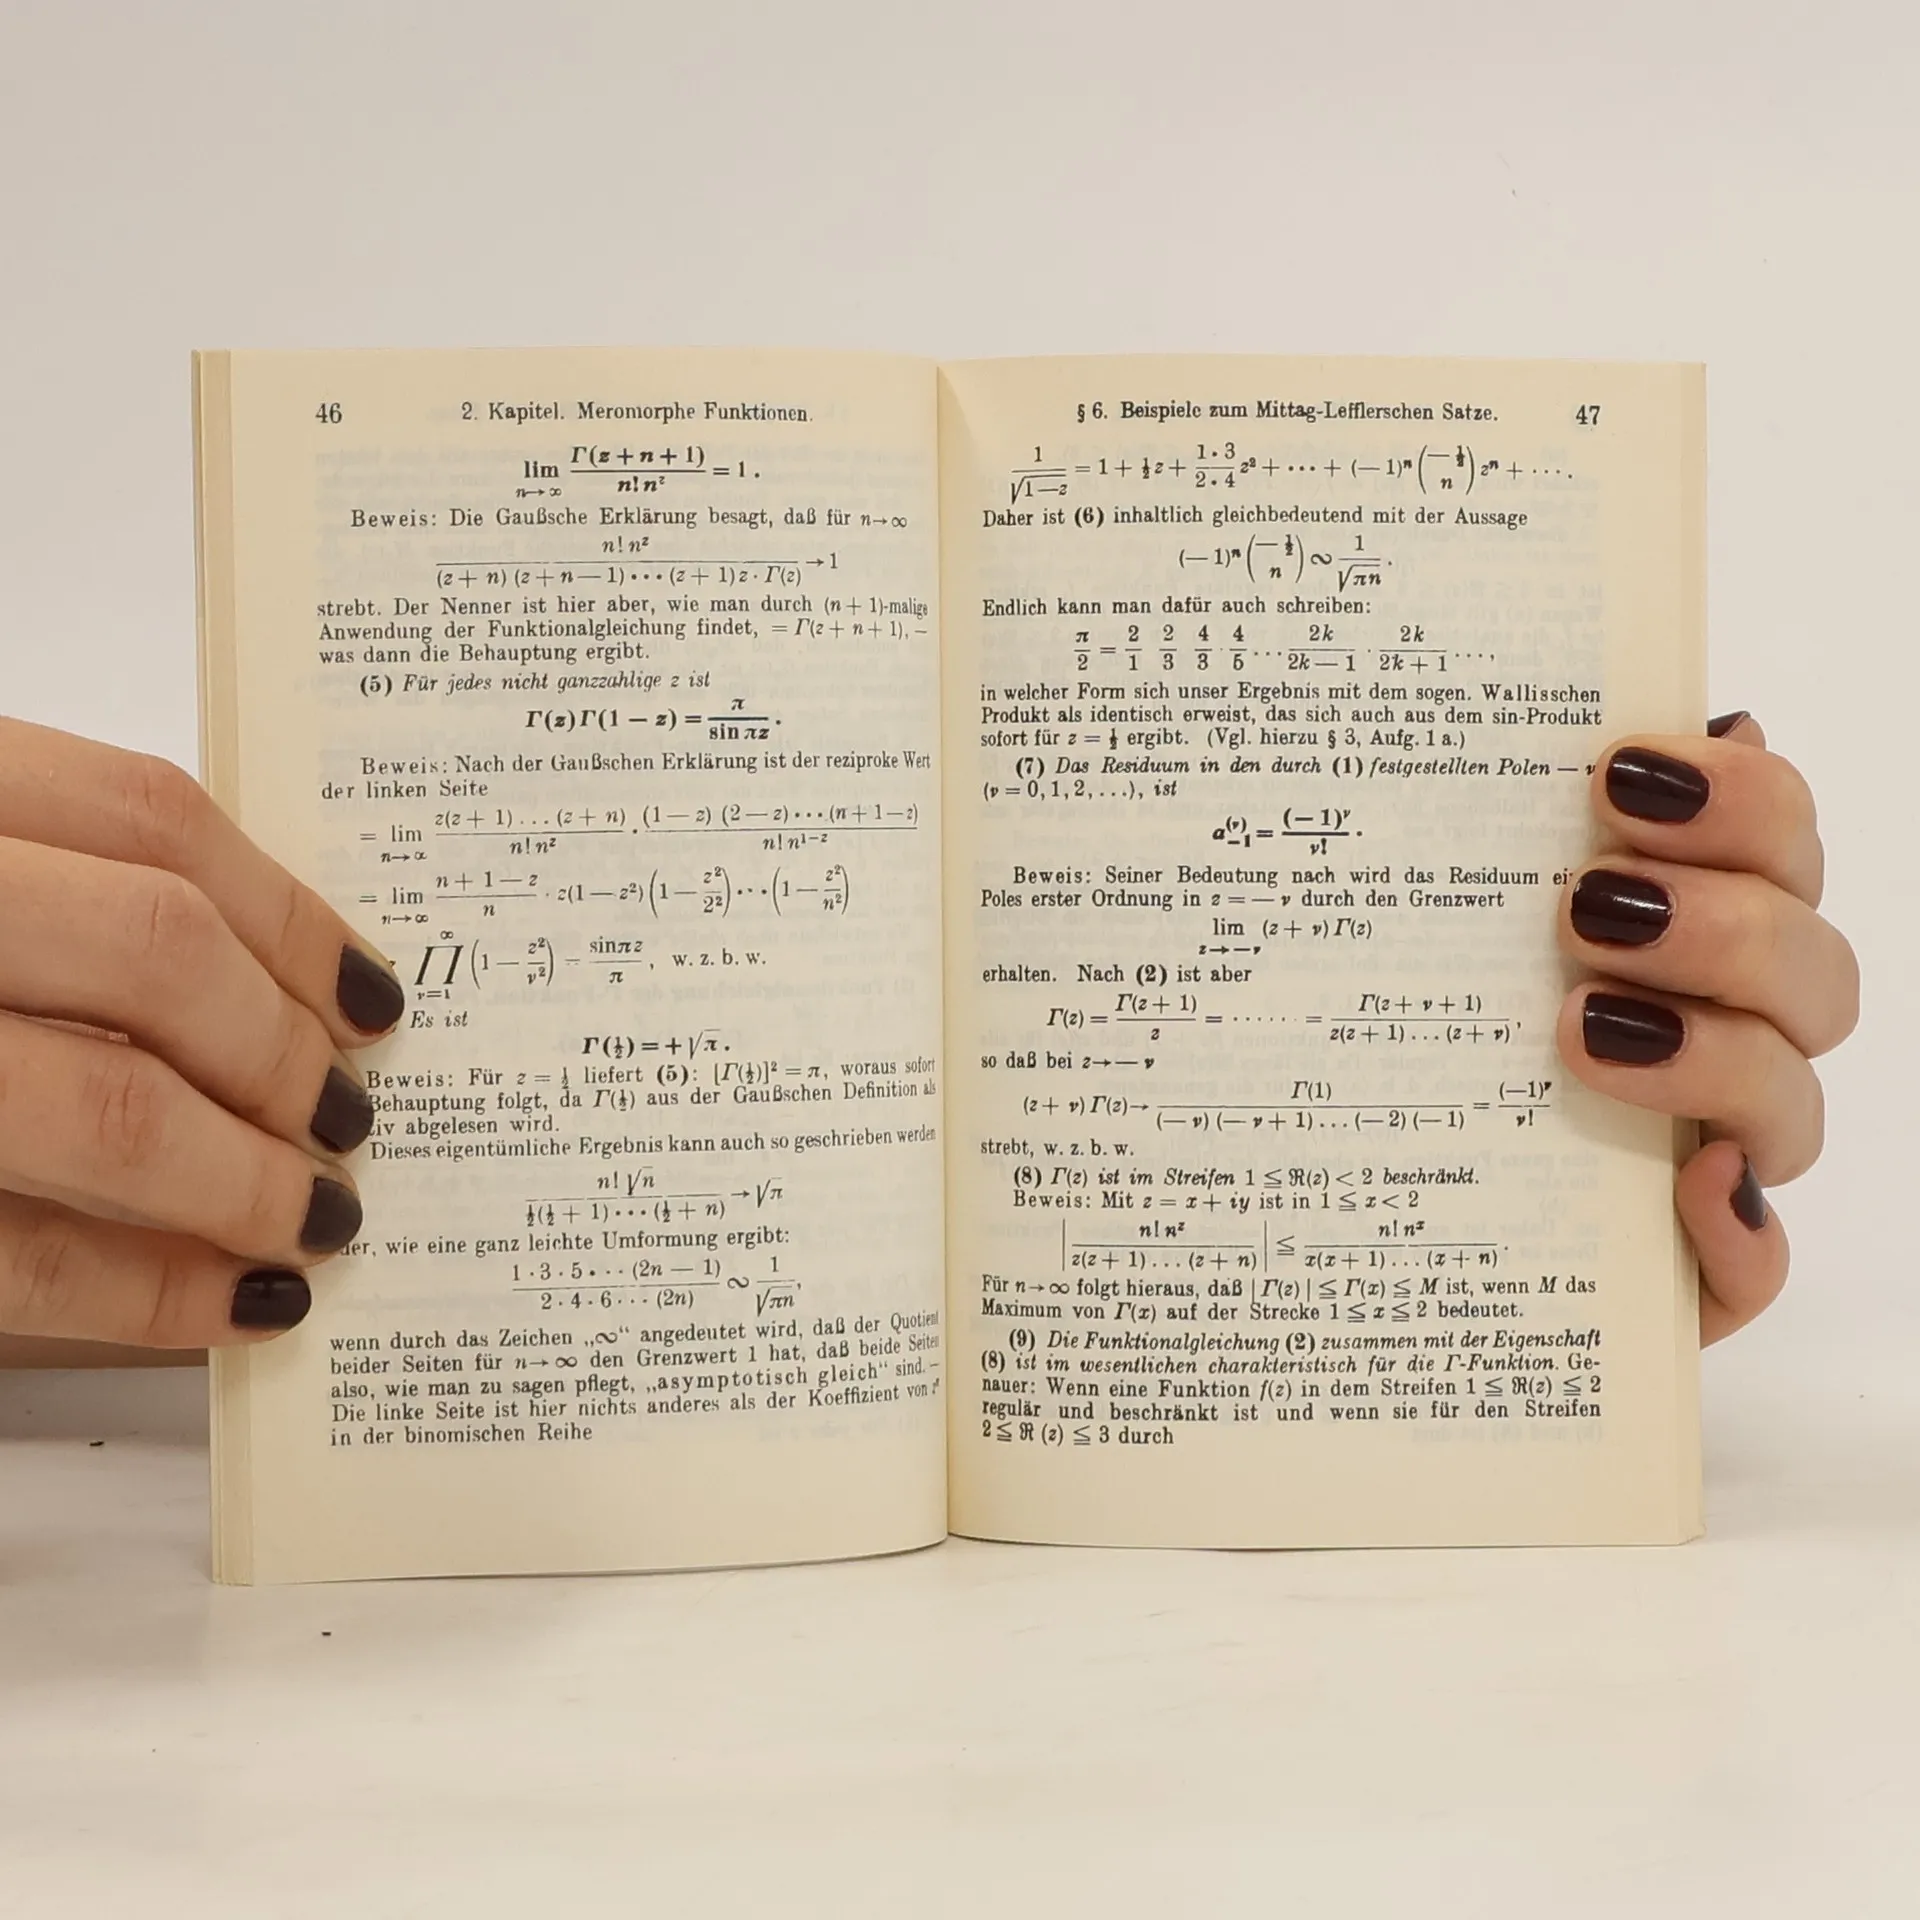 46
2. Kapitel. Meromorphe Funktionen.
lim n→∞ Γ(z+n+1) / n! n^z = 1.
Beweis: Die Gaußsche Erklärung besagt, daß für n→∞
n! n^z / (z+n) (z+n—1)···(z+1) z · Γ(z) → 1
strebt. Der Nenner ist hier aber, wie man durch (n+1)-malige
Anwendung der Funktionalgleichung findet, = Γ(z+n+1), —
was dann die Behauptung ergibt.
(5) Für jedes nicht ganzzahlige z ist
Γ(z)Γ(1 — z) = π / sin πz .
Beweis: Nach der Gaußschen Erklärung ist der reziproke Wert
der linken Seite
= lim n→∞ z(z+1)...(z+n) / n! n^z · (1—z) (2—z)···(n+1—z) / n! n^{1-z}
= lim n→∞ n+1—z / n · z(1—z²) (1 — z²/2²)···(1 — z²/n²)
∏ ν=1 ∞ (1 — z²/ν²) = sin πz / π , w. z. b. w.
Es ist
Γ(½) = +√π .
Beweis: Für z = ½ liefert (5): [Γ(½)]² = π, woraus sofort
Behauptung folgt, da Γ(½) aus der Gaußschen Definition als
abgelesen wird.
Dieses eigentümliche Ergebnis kann auch so geschrieben werden
n! √n / ½(½+1)···(½+n) → √π
wie eine ganz leichte Umformung ergibt:
1·3·5···(2n — 1) / 2·4·6···(2n) ∾ 1 / √πn ,
wenn durch das Zeichen „∾“ angedeutet wird, daß der Quotient
beider Seiten für n→∞ den Grenzwert 1 hat, daß beide Seiten
also, wie man zu sagen pflegt, „asymptotisch gleich“ sind. —
Die linke Seite ist hier nichts anderes als der Koeffizient von z^n
in der binomischen Reihe
§ 6. Beispiele zum Mittag-Lefflerschen Satze.
47
1 / √1—z = 1 + ½z + 1·3 / 2·4 z² + ··· + (—1)^n (—½ n) z^n + ···.
Daher ist (6) inhaltlich gleichbedeutend mit der Aussage
(—1)^n (—½ n) ∾ 1 / √πn .
Endlich kann man dafür auch schreiben:
π/2 = 2/1 · 2/3 · 4/3 · 4/5 ··· 2k / 2k—1 · 2k / 2k+1 ···,
in welcher Form sich unser Ergebnis mit dem sogen. Wallisschen
Produkt als identisch erweist, das sich auch aus dem sin-Produkt
sofort für z = ½ ergibt. (Vgl. hierzu § 3, Aufg. 1 a.)
(7) Das Residuum in den durch (1) festgestellten Polen —
(ν = 0, 1, 2, ...), ist
a_{-1}^{(ν)} = (—1)^ν / ν! .
Beweis: Seiner Bedeutung nach wird das Residuum
Poles erster Ordnung in z = — ν durch den Grenzwert
lim z→—ν (z + ν) Γ(z)
erhalten. Nach (2) ist aber
Γ(z) = Γ(z+1) / z = ······ = Γ(z+ν+1) / z(z+1)...(z+ν) ,
so daß bei z→—ν
(z+ν) Γ(z) → Γ(1) / (—ν) (—ν+1)...(—2) (—1) = (—1)^ν / ν!
strebt, w. z. b. w.
(8) Γ(z) ist im Streifen 1 ≦ ℜ(z) < 2 beschränkt.
Beweis: Mit z = x + iy ist in 1 ≦ x < 2
| n! n^z / z(z+1)...(z+n) | ≦ n! n^x / x(x+1)...(x+n) .
Für n→∞ folgt hieraus, daß |Γ(z)| ≦ Γ(x) ≦ M ist, wenn M das
Maximum von Γ(x) auf der Strecke 1 ≦ x ≦ 2 bedeutet.
(9) Die Funktionalgleichung (2) zusammen mit der Eigenschaft
(8) ist im wesentlichen charakteristisch für die Γ-Funktion. Ge-
nauer: Wenn eine Funktion f(z) in dem Streifen 1 ≦ ℜ(z) ≦ 2
regulär und beschränkt ist und wenn sie für den Streifen
2 ≦ ℜ(z) ≦ 3 durch